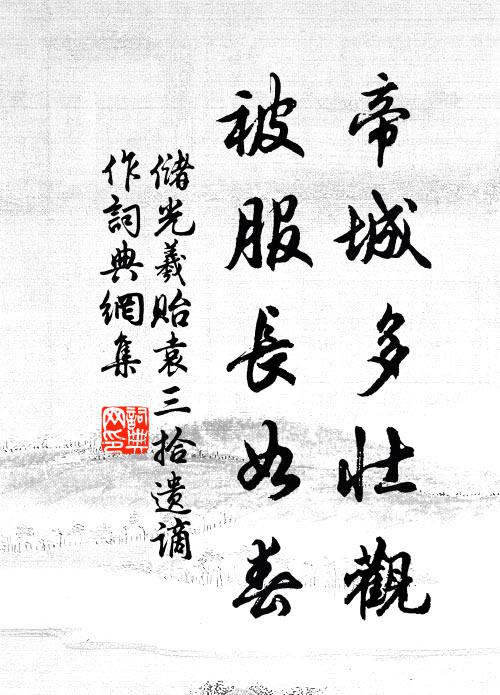 帝城多壯觀
被服長如春
儲光羲貽袁三拾遺謫
作詞典網集
詞典網印